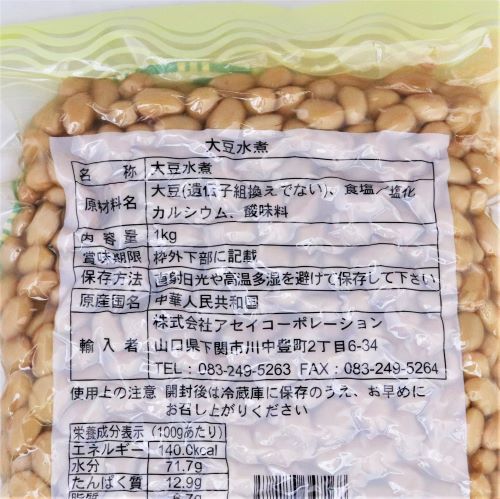 大豆水煮
名称 大豆水煮
原材料名 大豆(遺伝子組換えでない)、食塩／塩化
カルシウム、酸味料
内容量 1kg
賞味期限 枠外下部に記載
保存方法 直射日光や高温多湿を避けて保存して下さい
原産国名 中華人民共和国
株式会社アセイコーポレーション
輸入者 山口県下関市川中豊町2丁目6-34
TEL：083-249-5263 FAX：083-249-5264
使用上の注意 開封後は冷蔵庫に保存のうえ、お早めに
お召し上がりください
栄養成分表示 (100gあたり)
エネルギー 140.0kcal
水分 71.7g
たんぱく質 12.9g
脂質 6.7g